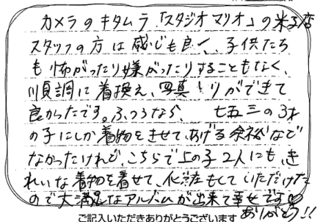 カメラのキタムラ「スタジオマリオ」の米子店
スタッフの方は感じも良く、子供たち
も怖がったり嫌がったりすることもなく、
順調に着換え、写真とりができて
良かったです。ふつうなら、七五三の3才
の子にしか着物をきせてあげる余裕など
なかったけれど、こちらで上の子2人にも、き
れいな着物を着せて、化粧もしていただけた
ので大満足なアルバムが出来て幸せです♡
ありがとう!!
ご記入いただきありがとうございます